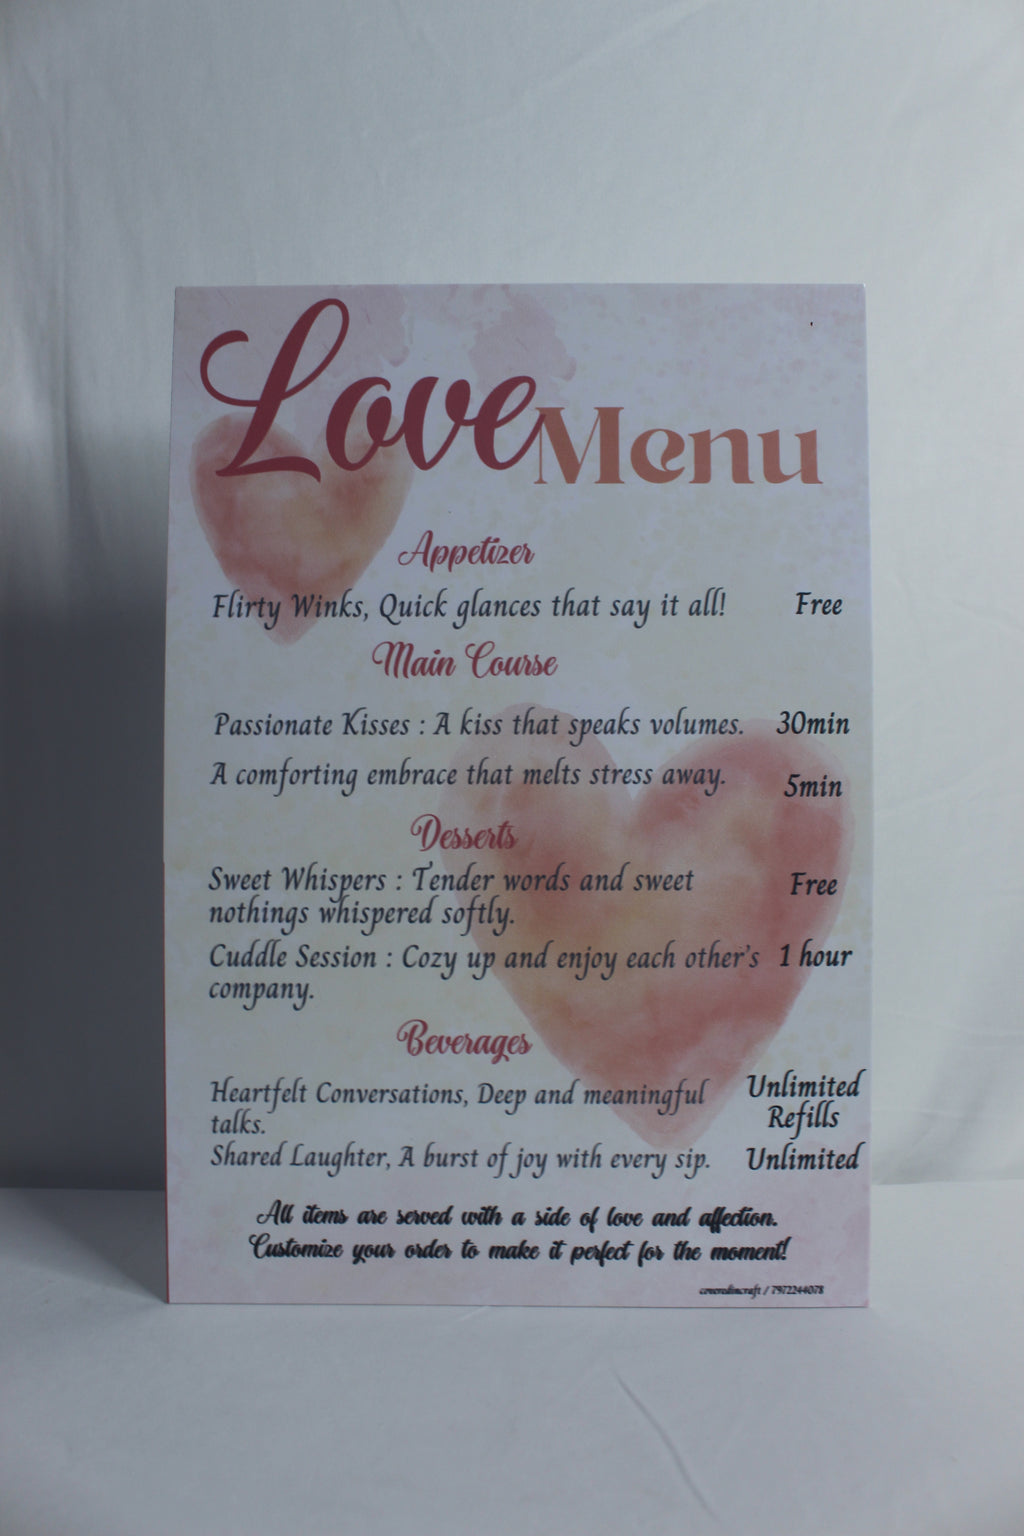 Love Menu
Appetizer
Flirty Winks, Quick glances that say it all! Free
Main Course
Passionate Kisses : A kiss that speaks volumes. 30min
A comforting embrace that melts stress away. 5min
Desserts
Sweet Whispers : Tender words and sweet Free
nothings whispered softly.
Cuddle Session : Cozy up and enjoy each other's 1 hour
company.
Beverages
Heartfelt Conversations, Deep and meaningful Unlimited
talks. Refills
Shared Laughter, A burst of joy with every sip. Unlimited
All items are served with a side of love and affection.
Customize your order to make it perfect for the moment!
coveredincraft / 7972244078